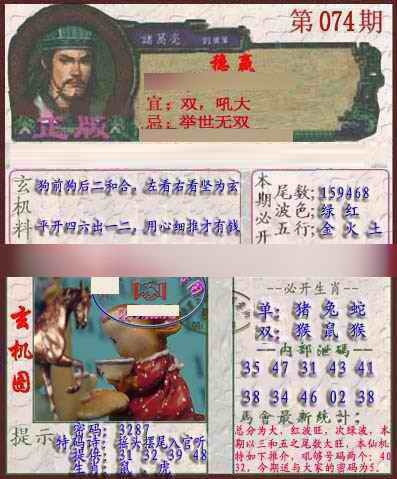 第074期
諸葛亮
稳赢
宜：双，吼大
忌：举世无双
正版
玄机料
狗前狗后二和合。左看右看坚为玄
平开四六出一二，用心细推才有钱
本期必开
尾数：159468
波色：绿 红
五行：金 火 土
玄机图
必开生肖
单：猪 兔 蛇
双：猴 鼠 猴
内部泄码
35 47 31 43 41
38 34 46 02 38
馬會最新统计：
总分为大，红波旺，次绿波，本
期以三和五之尾数大旺，本仙机
特如下推介，吼够号码两个：40
32，今期送与大家的密码为5．
提示
密码：3287
特码诗：摇头摆尾入官听
提倍：31 32 39 48
生肖：鼠．虎